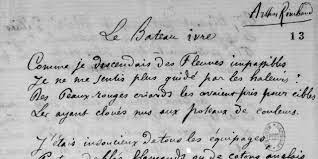 Arthur Rimbaud
Le Bateau ivre
13
Comme je descendais des Fleuves impassibles
Je ne me sentis plus guidé par les haleurs :
Des Peaux-rouges criards les avaient pris pour cibles
Les ayant cloués nus aux poteaux de couleurs.
J'étais insoucieux de tous les équipages,
flamands ou de cotons anglais